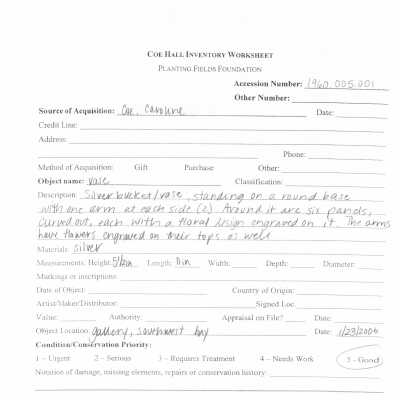 COE HALL INVENTORY WORKSHEET
PLANTING FIELDS FOUNDATION
Accession Number: 1960.005.001
Other Number:
Source of Acquisition: Coe, Caroline Date:
Credit Line:
Address:
Phone:
Method of Acquisition: Gift Purchase Other:
Object name: vase Classification:
Description: Silver bucket/vase, standing on a round base
with one arm at each side (2). Around it are six panels,
curved out, each with a floral design engraved on it. The arms
have flowers engraved on their tops as well
Materials: silver
Measurements: Height: Length: Width: Depth: Diameter:
Markings or inscriptions:
Date of Object: Country of Origin:
Artist/Maker/Distributor: Signed Loc.
Value: Authority: Appraisal on File? Date:
Object Location: gallery, southwest bay Date: 1/23/2005
Condition/Conservation Priority:
1 – Urgent 2 – Serious 3 – Requires Treatment 4 – Needs Work 5 – Good
Notation of damage, missing elements, repairs or conservation history: